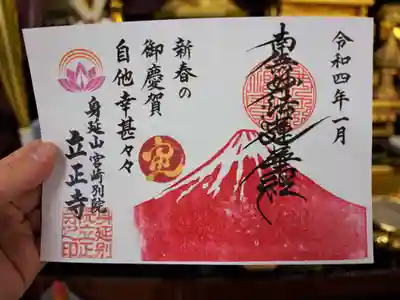 令和四年一月
南無妙法蓮華経
新春の
御慶賀
自他幸甚々々
寅
身延山宮崎別院
立正寺